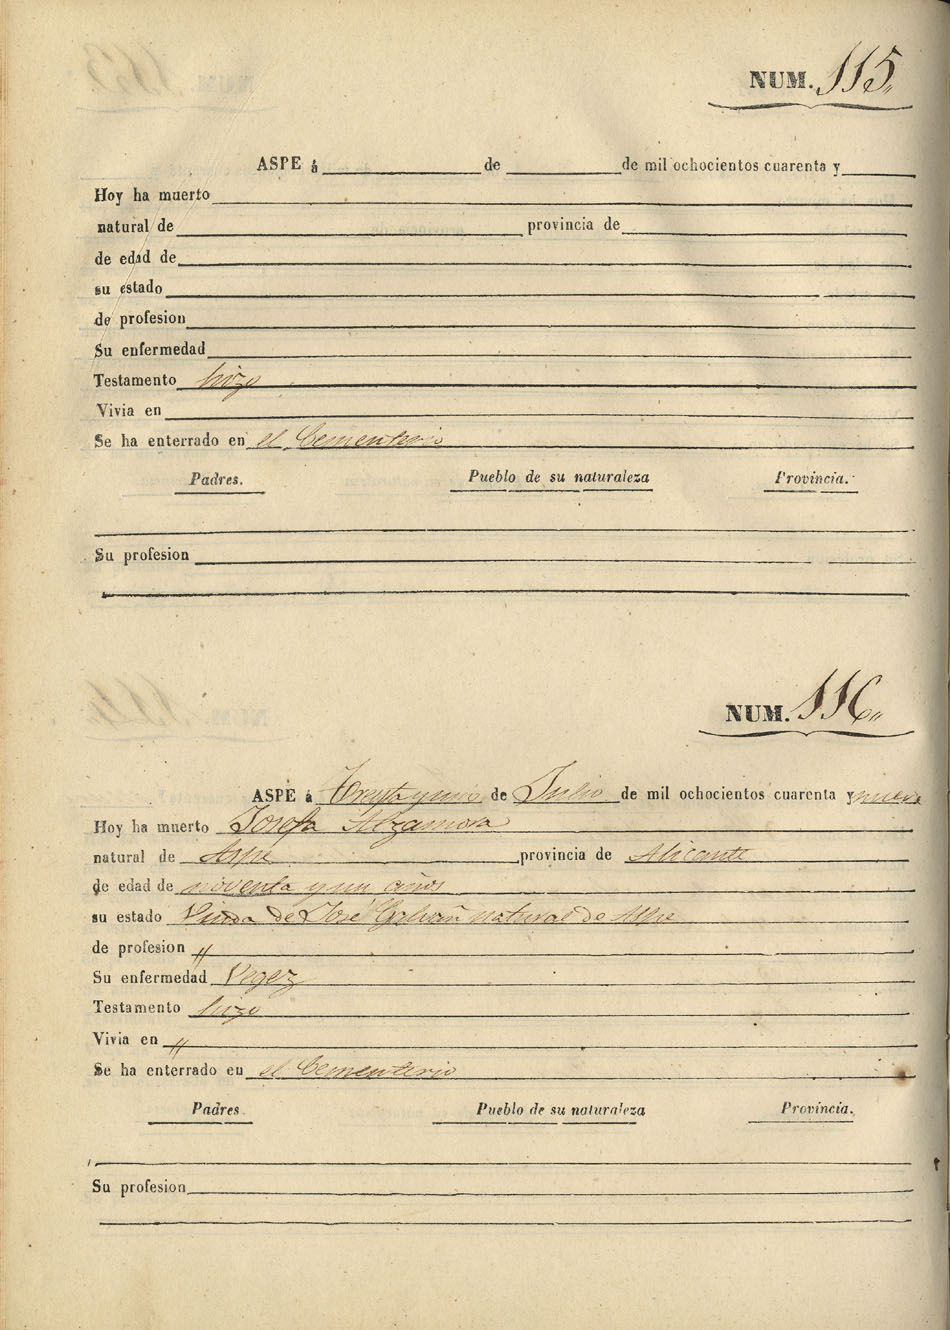 NUM. 115
ASPE á de de mil ochocientos cuarenta y
Hoy ha muerto
natural de provincia de
de edad de
su estado
de profesion
Su enfermedad
Testamento hizo
Vivia en
Se ha enterrado en el Cementerio
Padres. Pueblo de su naturaleza Provincia.
Su profesion
NUM. 116
ASPE á Treyta y uno de Julio de mil ochocientos cuarenta y nueve
Hoy ha muerto Josefa Alzamora
natural de Aspe provincia de Alicante
de edad de noventa y un años
su estado Viuda de José Galvañ natural de Aspe
de profesion "
Su enfermedad Vegez
Testamento hizo
Vivia en "
Se ha enterrado en el Cementerio
Padres. Pueblo de su naturaleza Provincia.
Su profesion